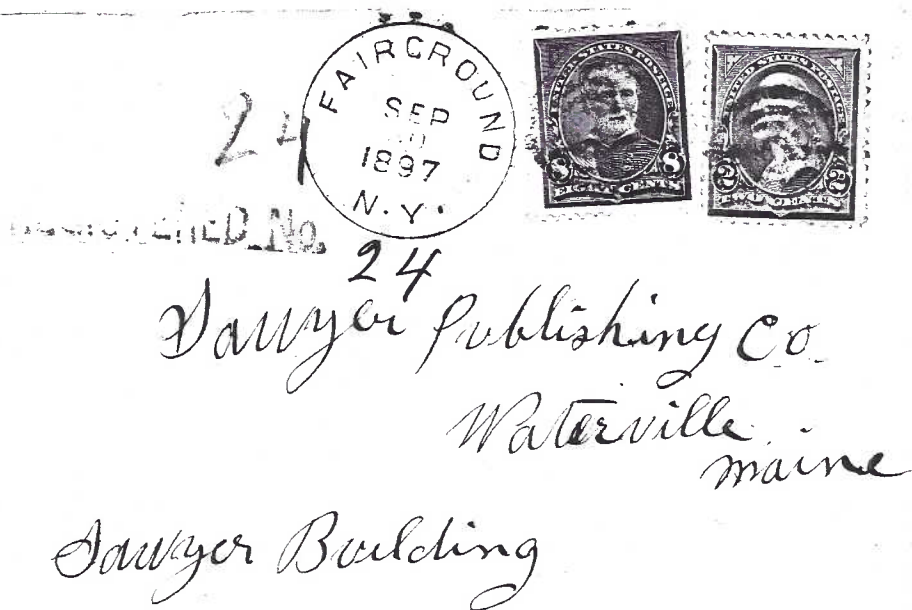 FAIRGROUND
SEP
1897
N.Y.
24
UNITED STATES POSTAGE
8 8
EIGHT CENTS
UNITED STATES POSTAGE
2 2
TWO CENTS
No.
24
Sawyer Publishing Co.
Waterville
Maine
Sawyer Building